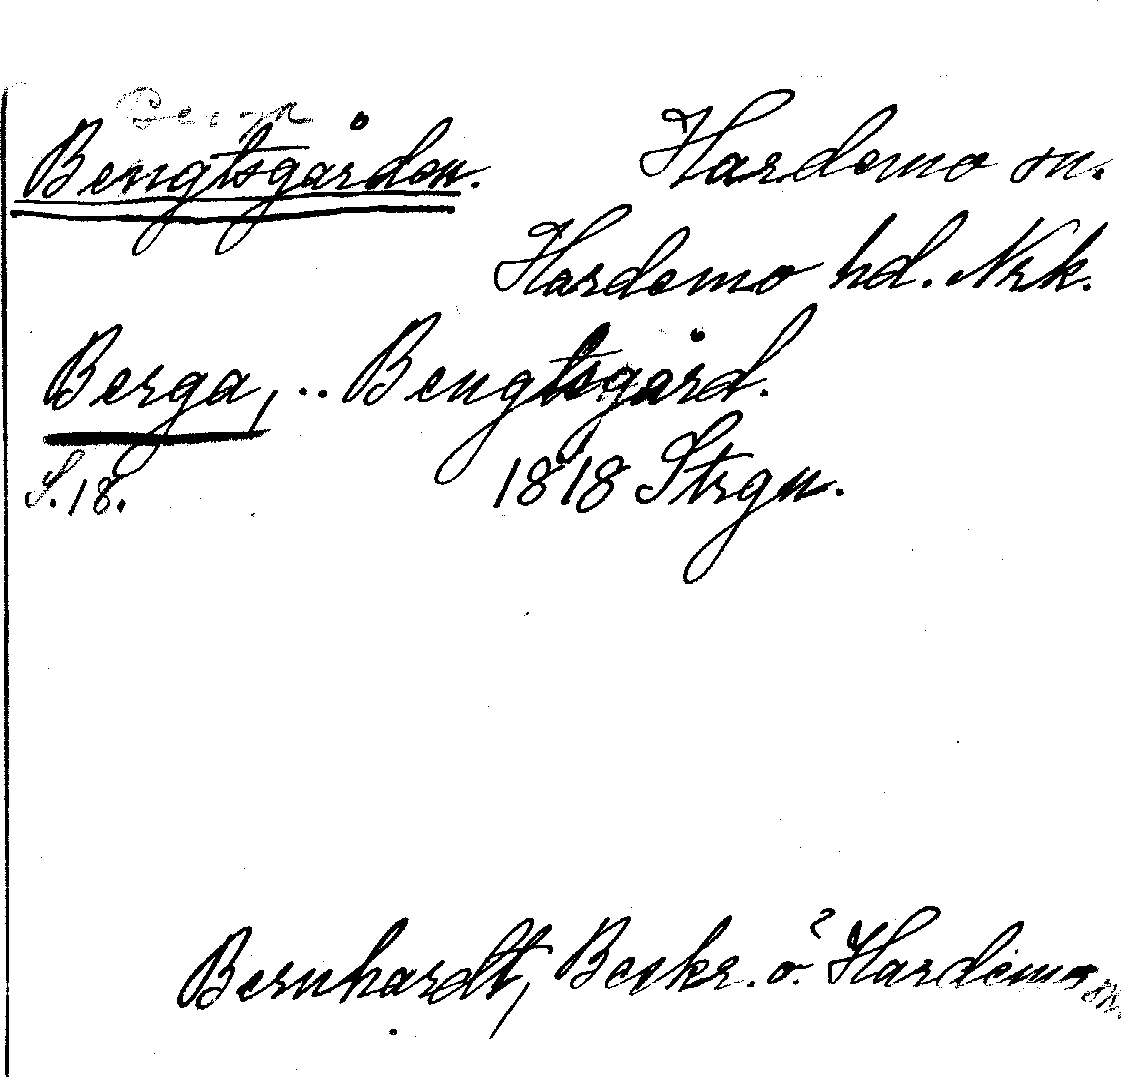 Berga
Bengtsgården. Hardemo sn.
Hardemo hd. Nrk.
Berga, .. Bengtsgård.
S. 18. 1818 Strgn.
Bernhardt, Beskr. ö. Hardemo sn.